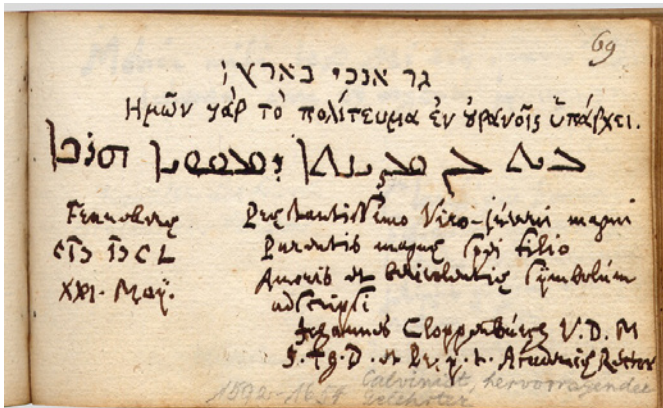 69
גר אנכי בארץ
Ημῶν γὰρ τὸ πολίτευμα ἐν ȣρανοῖς ὑπάρχει.
Franekerae
CIƆ IƆC L
XXI. Maÿ.
Praestantissimo Viro-juveni magni
Parentis magnae spei filio
Amoris et benivolentiae symbolum
adscripsi
Johannes Cloppenburg V. D. M
S. Th. D. et Pr. p. t. Academiae Rector
1592-1654 Calvinist, hervorragender
Gelehrter